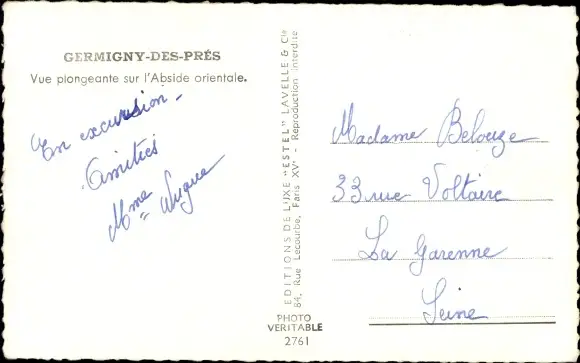 GERMIGNY-DES-PRÉS
Vue plongeante sur l'Abside orientale.
En excursion -
Amitiés
Mme
EDITIONS DE LUXE "ESTEL" LAVELLE & Cie
84, Rue Lecourbe, Paris XVe - Reproduction interdite
PHOTO
VERITABLE
2761
Madame Belouze
33 rue Voltaire
La Garenne
Seine